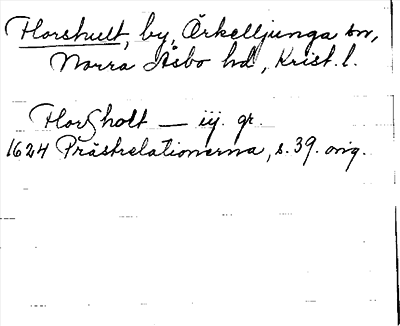 Horshult, by, Örkelljunga sn,
Norra Åsbo hd, Krist. l.
Horßholt — iij. gr.
1624 Prästrelationerna, s. 39. orig.